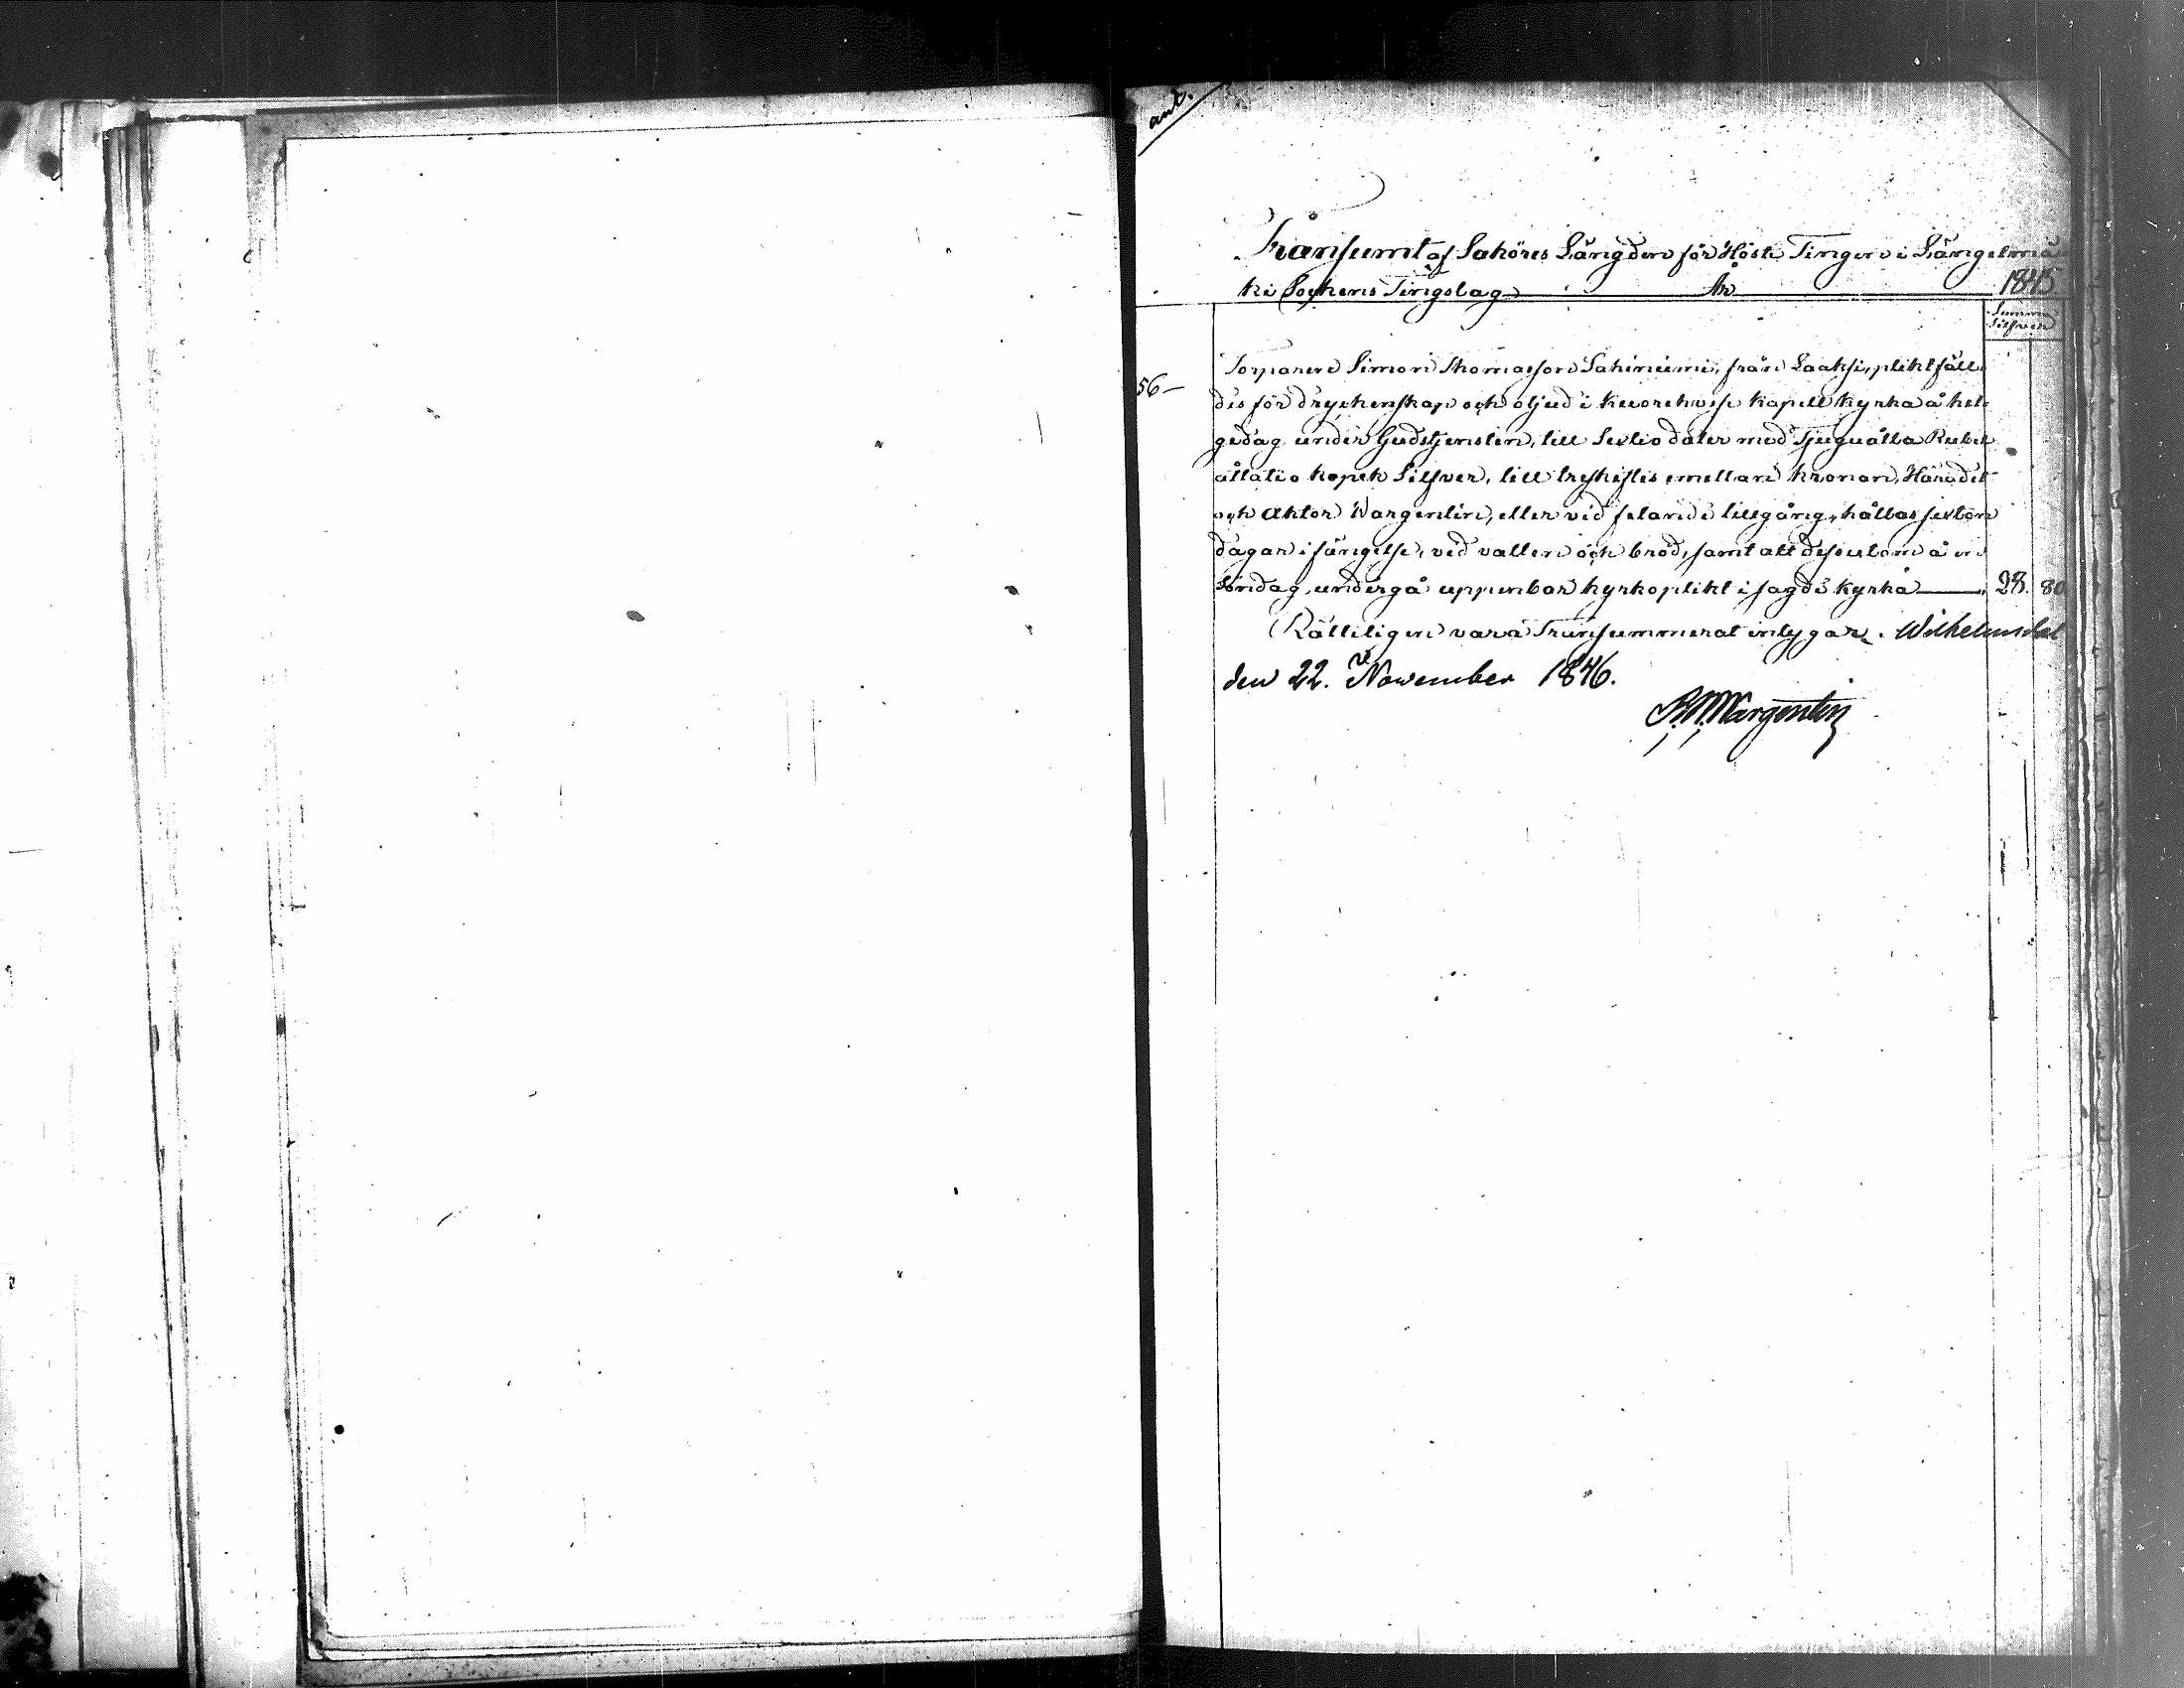 ant.
Transumt af Saköres Längden för Höste Tingen i Längelmä
ki Sockens Tingslag År 1845
Summa
Silfver
56 – Torparen Simon Thomasson Sahiniemi, från Laaksi, pliktfäll
des för dryckenskap och oljud i Kuorehvesi Kapell Kyrka å hel
gedag under Gudstjensten, till Sextio daler med Tjuguåtta Rubel
åttatio kopek Silfver, till treskiftes emellan Kronan, Häradet
och Aktor Wargentin, eller vid felande tillgång, hållas sexton
dagar i fängelse, vid vatten och bröd, samt att dessutom å en
Söndag, undergå uppenbar kyrkoplikt i sagde kyrka — 28. 80
Rätteligen vara Transummerat intygar. Wilhelmsdal
den 22. November 1846.
Wargentin